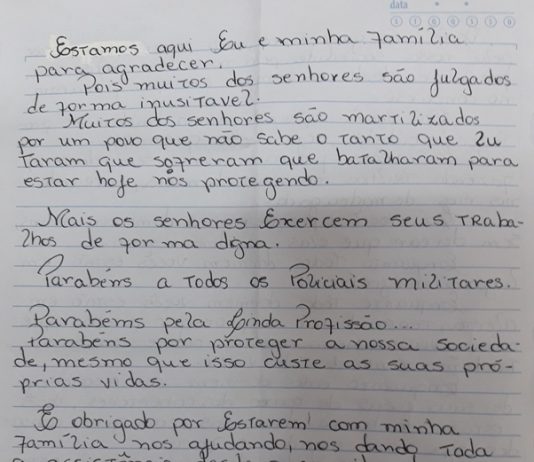 data
Estamos aqui Eu e minha família
para agradecer.
Pois muitos dos senhores são julgados
de forma inusitavel.
Muitos dos senhores são martilizados
por um povo que não sabe o tanto que lu
taram que sofreram que batalharam para
estar hoje nós protegendo.
Mais os senhores Exercem seus TRaba-
lhos de forma dgna.
Parabéns a Todos os Policiais militares.
Parabéms pela Linda Profissão...
Parabéns por proteger a nossa socieda-
de, mesmo que isso custe as suas pró-
prias vidas.
E obrigado por Estarem com minha
família nos ajudando, nos dando Toda